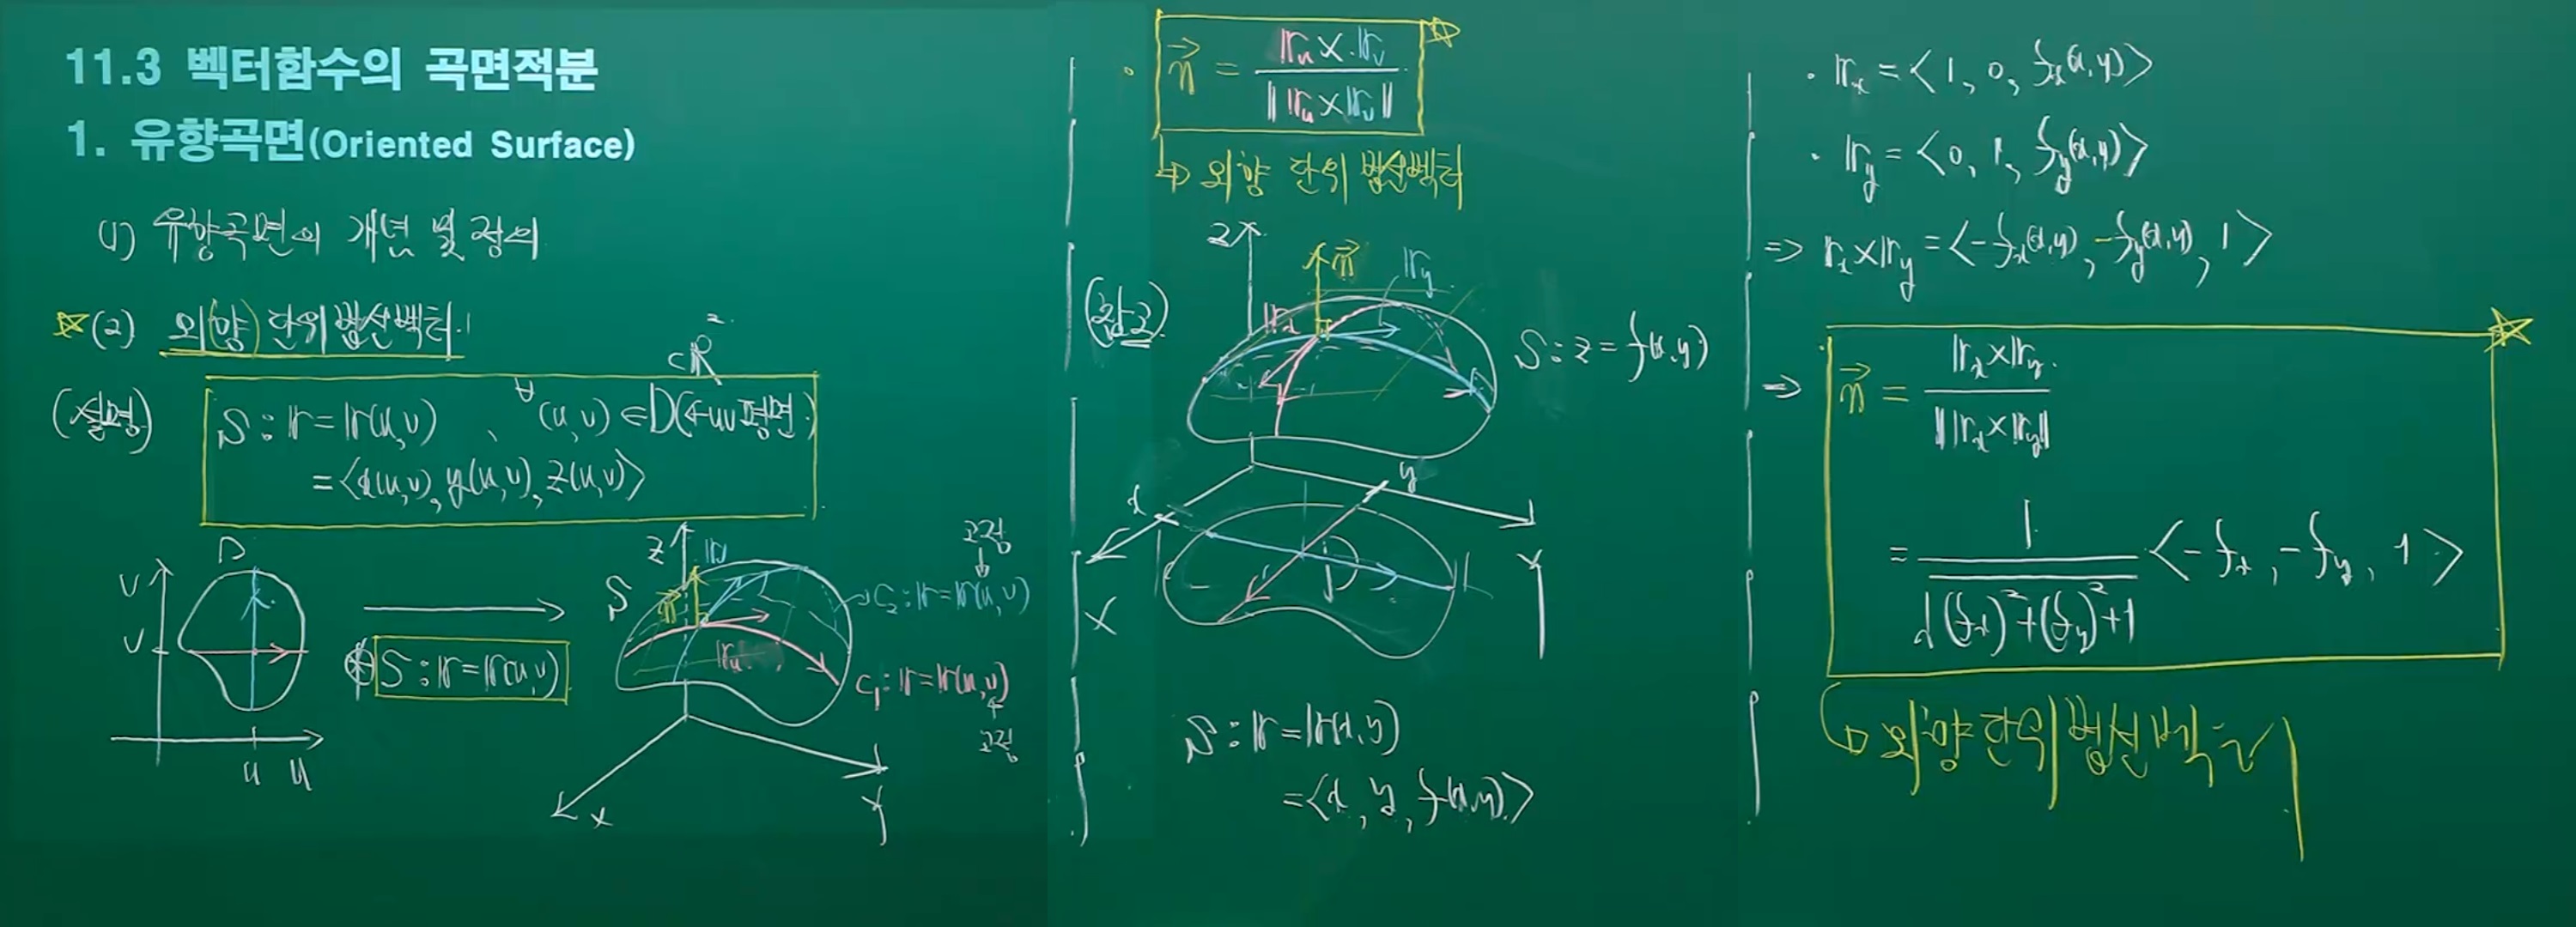 11.3 벡터함수의 곡면적분
1. 유향곡면(Oriented Surface)
(1) 유향곡면의 개념 및 정의
☆(2) 외(향) 단위법선벡터
(설명)
S : r = r(u,v) , ∀(u,v) ∈ D(←uv평면) ⊂ R²
= <x(u,v), y(u,v), z(u,v)>
D
v
v
u u
S : r = r(u,v)
S
z
n
r_v
r_u
고정
↓
C₂ : r = r(u,v)
C₁ : r = r(u,v)
↑
고정
x
y
· n = (r_u × r_v) / ‖r_u × r_v‖ ☆
↳ 외향 단위 법선벡터
(참고)
z
n
r_y
r_x
S : z = f(x,y)
x
y
D
X
Y
S : r = r(x,y)
= <x, y, f(x,y)>
· r_x = <1, 0, f_x(x,y)>
· r_y = <0, 1, f_y(x,y)>
⇒ r_x × r_y = <-f_x(x,y), -f_y(x,y), 1>
⇒ n = (r_x × r_y) / ‖r_x × r_y‖ ☆
= 1 / √((f_x)² + (f_y)² + 1) · <-f_x, -f_y, 1>
↳ 외향 단위 법선벡터